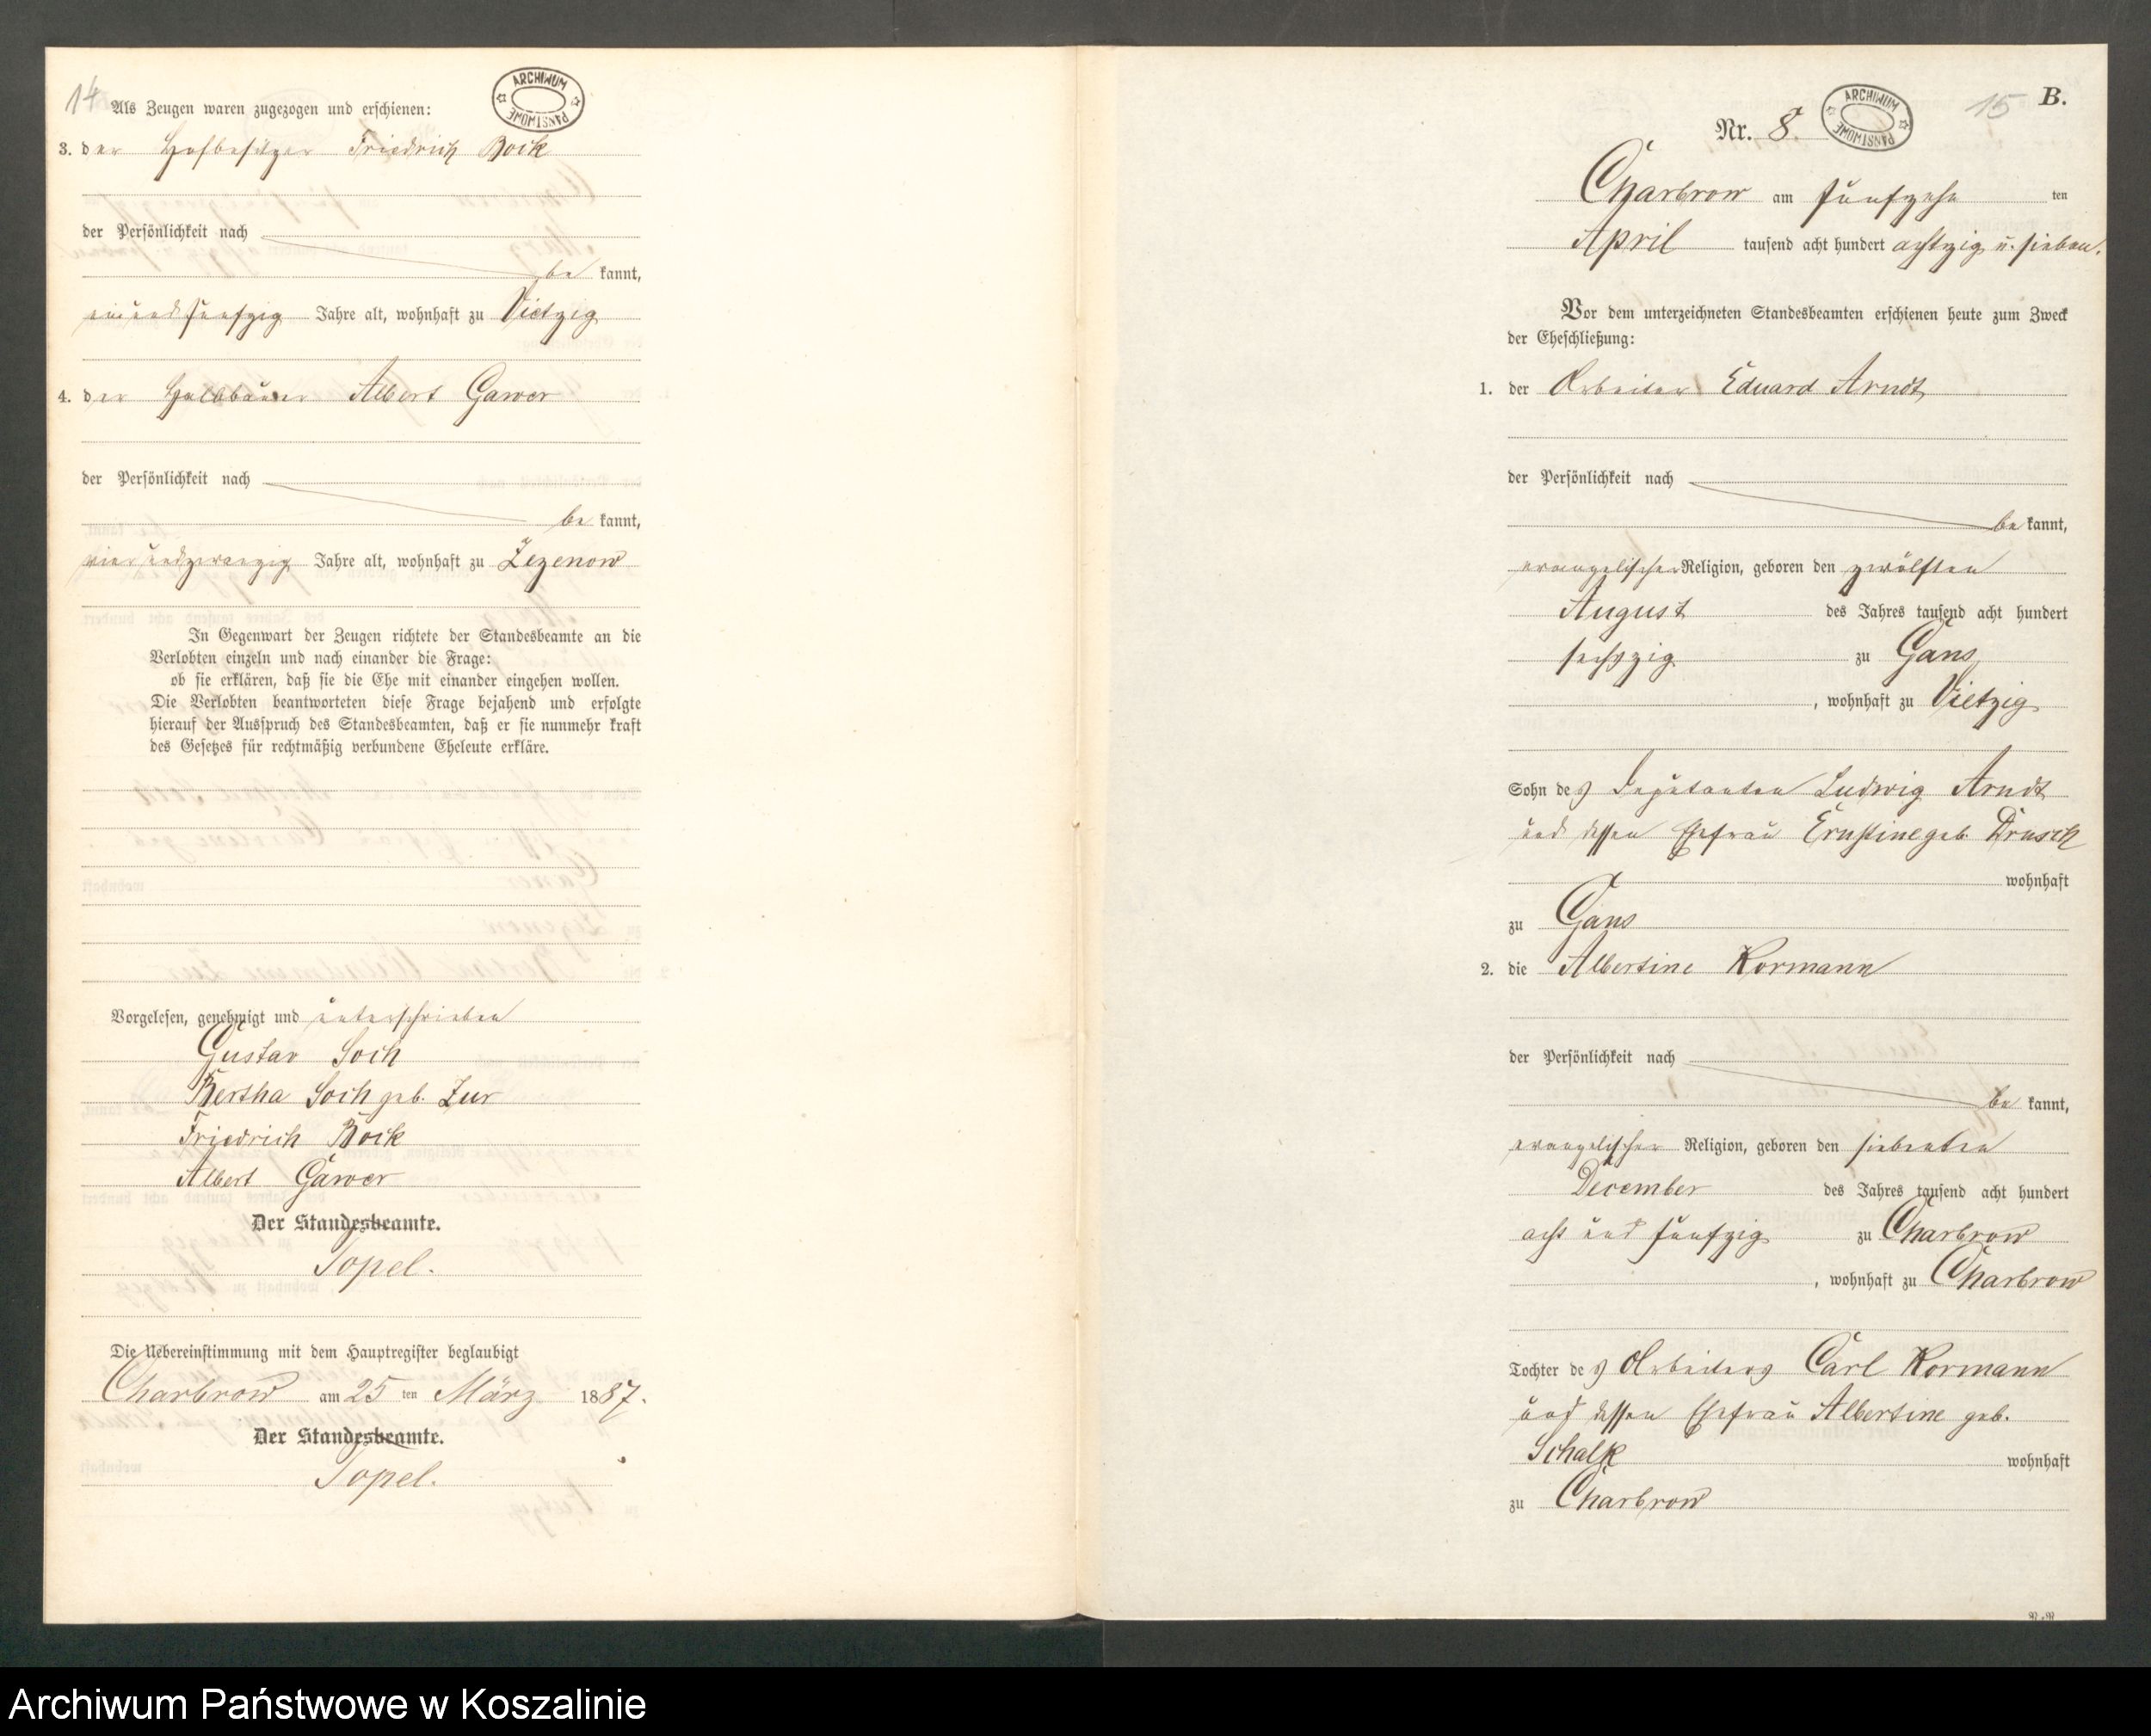 14
ARCHIWUM PAŃSTWOWE
Als Zeugen waren zugezogen und erschienen:
3. der Hofbesitzer Friedrich Bock
der Persönlichkeit nach
be kannt,
einundfunfzig Jahre alt, wohnhaft zu Vietzig
4. der Halbbauer Albert Gawer
der Persönlichkeit nach
be kannt,
vierundzwanzig Jahre alt, wohnhaft zu Zezenow
In Gegenwart der Zeugen richtete der Standesbeamte an die
Verlobten einzeln und nach einander die Frage:
ob sie erklären, daß sie die Ehe mit einander eingehen wollen.
Die Verlobten beantworteten diese Frage bejahend und erfolgte
hierauf der Ausspruch des Standesbeamten, daß er sie nunmehr kraft
des Gesetzes für rechtmäßig verbundene Eheleute erkläre.
Vorgelesen, genehmigt und unterschrieben
Gustav Soch
Bertha Soch geb. Zur
Friedrich Bock
Albert Gawer
Der Standesbeamte.
Topel.
Die Uebereinstimmung mit dem Hauptregister beglaubigt
Charbrow am 25 ten März 1887.
Der Standesbeamte.
Topel.
15 B.
ARCHIWUM PAŃSTWOWE
Nr. 8.
Charbrow am funfzehn ten
April tausend acht hundert achtzig u. sieben.
Vor dem unterzeichneten Standesbeamten erschienen heute zum Zweck
der Eheschließung:
1. der Arbeiter Eduard Arndt
der Persönlichkeit nach
be kannt,
evangelischer Religion, geboren den zwölften
August des Jahres tausend acht hundert
sechszig zu Gans
, wohnhaft zu Vietzig
Sohn des Deputanten Ludwig Arndt
und dessen Ehefrau Ernstine geb. Drusch
wohnhaft
zu Gans
2. die Albertine Kormann
der Persönlichkeit nach
be kannt,
evangelischer Religion, geboren den siebenten
December des Jahres tausend acht hundert
acht und funfzig zu Charbrow
, wohnhaft zu Charbrow
Tochter des Arbeiters Carl Kormann
und dessen Ehefrau Albertine geb.
Schalk wohnhaft
zu Charbrow
Archiwum Państwowe w Koszalinie